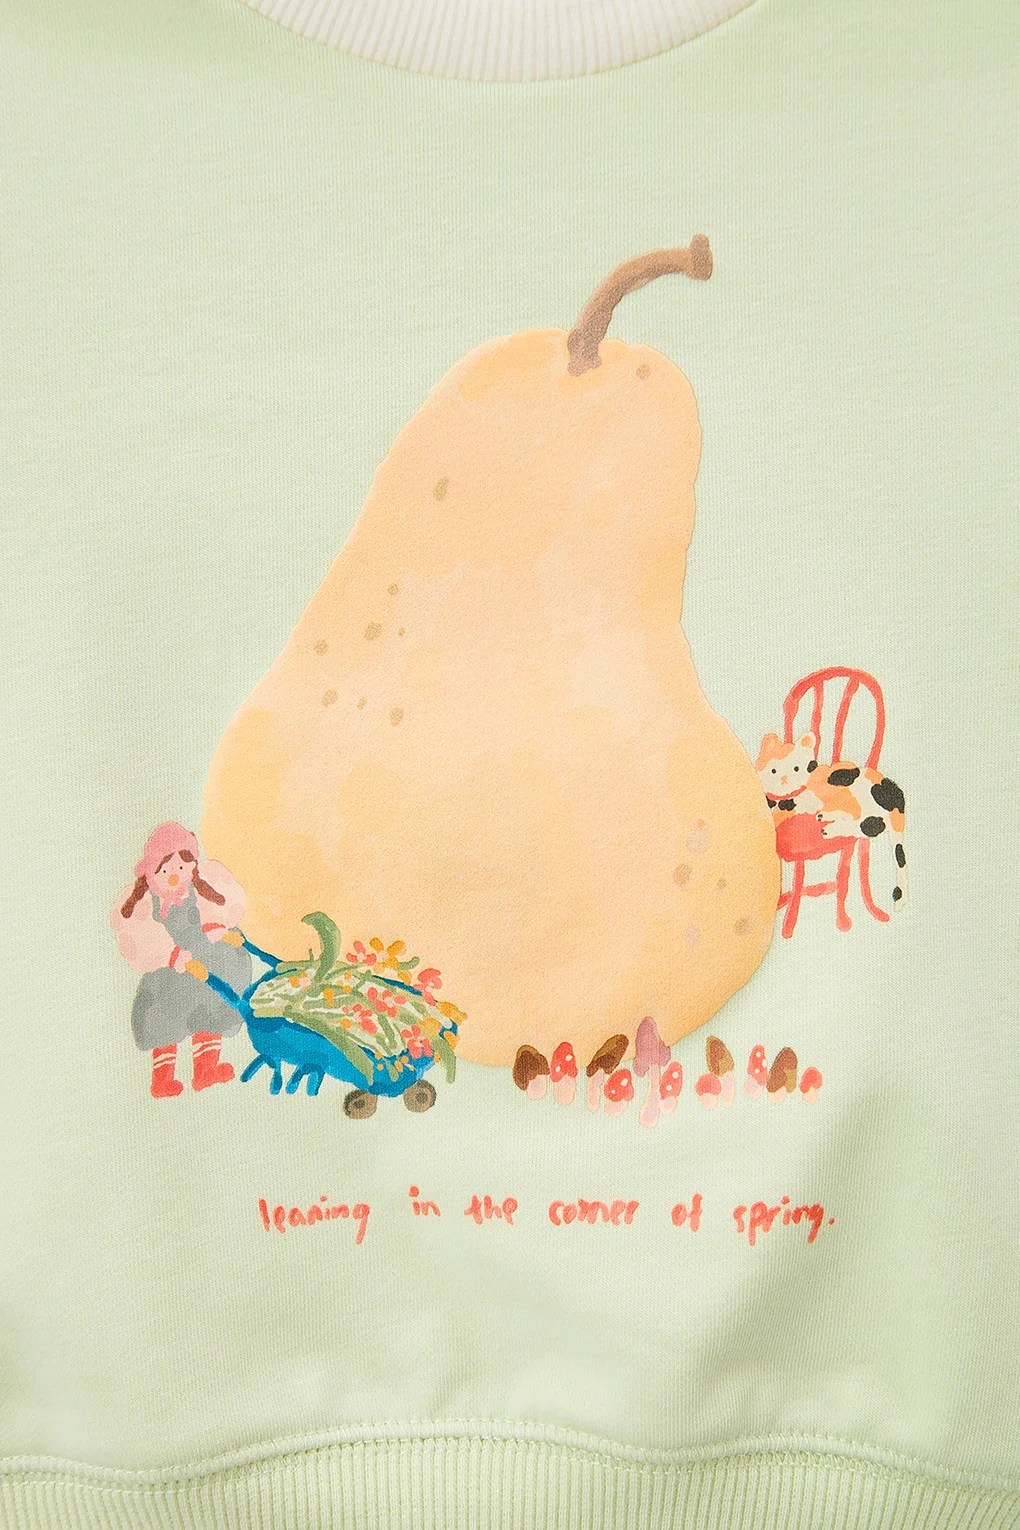 leaning in the corner of spring.